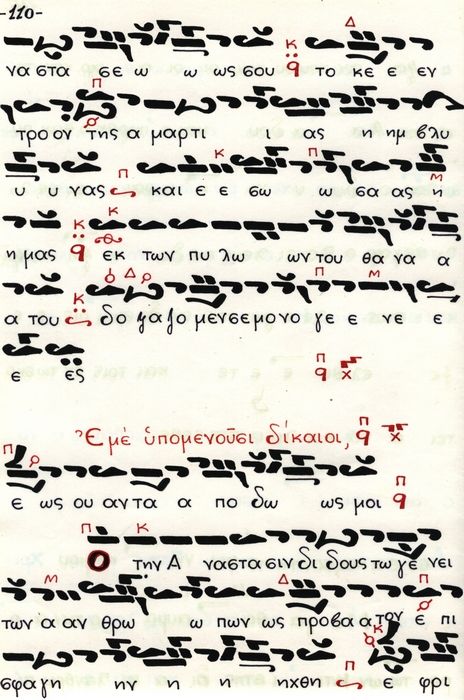 -110-
να στα σε ω ω ως σου το κε ε εν
τρο ον της α μαρτι ι ας η ημ βλυ
υ υ νας και ε ε σω ω σα ας η
η μας εκ των πυ λω ων του θα να α
α του δο ξα ζο μεν σε μο νο γε ε νε ε
ε ες
Ἐμὲ ὑπομενοῦσι δίκαιοι,
ε ως ου αν τα α πο δω ως μοι
Ο την Α ναστασιν δι δους τω γε νει
των α αν θρω πων ως προβα α τον ε πι
σφα γη ην η η ηχθη ε φρι